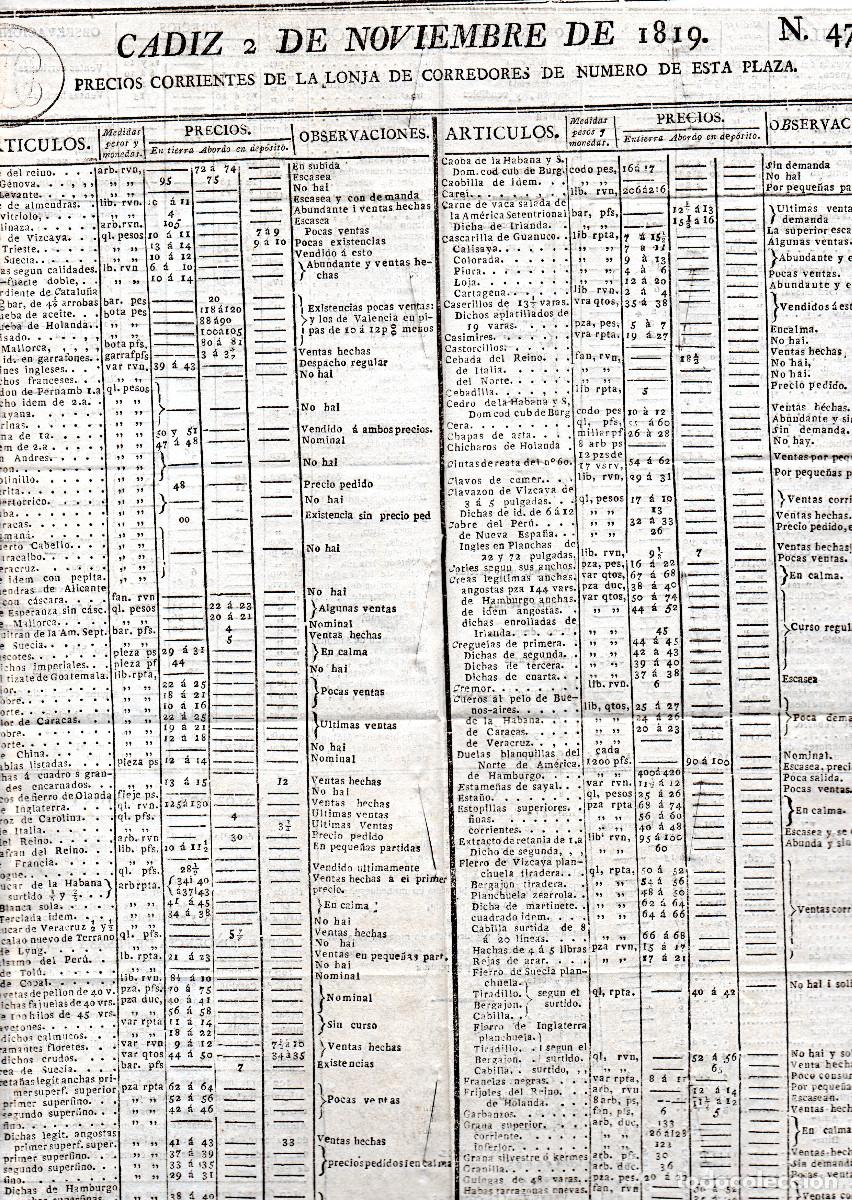 CADIZ 2 DE NOVIEMBRE DE 1819. N. 47
PRECIOS CORRIENTES DE LA LONJA DE CORREDORES DE NUMERO DE ESTA PLAZA.
ARTICULOS. Medidas pesos y monedas. PRECIOS. En tierra Abordo en depósito. OBSERVACIONES.
del reino. arb. rvn, 72 á 74 En subida
Génova. ,, ,, 95 75 Escasea
Levante. ,, ,, No hai
de almendras. lib. rvn, á 11 Escasea y con demanda
vitriolo, ,, ,, 4 Abundante i ventas hechas
linaza. arb. rvn. 105 Escasea
de Vizcaya. ql. pesos 10 á 11 7 á 9 Pocas ventas
Trieste. ,, ,, 13 á 14 9 á 10 Pocas existencias
Suecia. ,, ,, 10 á 12 Vendido á esto
as segun calidades. lib. rvn 6 á 10 Abundante y ventas he-
fuerte doble, ,, ,, 10 á 14 chas
rdiente de Cataluña
bar, de 4½ arrobas bar. pes 20
ueba de aceite. bota pes 118 á 120 Existencias pocas ventas:
ueba de Holanda. ,, ,, 88 á 90 y los de Valencia en pi-
,, ,, 100 á 105 pas de 10 á 12 p menos
Mallorca, bota pfs. 80 á 81
id. en garrafones. garraf pfs 3 á Ventas hechas
ines ingleses. var rvn. 39 á 43 Despacho regular
chos franceses. ,, ,, No hai
don de Pernamb 1.a ql. pesos
cho idem de 2.a ,, ,,
ayana. ,, ,, No hai
rinas. ,, ,,
na de 1a. ,, ,, 50 y 51 Vendido á ambos precios.
em de 2.a ,, ,, 47 á 48 Nominal
n Andres. ,, ,,
,, ,, No hai
olinillo. ,, ,,
rita. ,, ,, 48 Precio pedido
ertorrico. ,, ,, No hai
uba. ,, ,, 00 Existencia sin precio ped
aracas. ,, ,,
umaná. ,, ,,
uerto Cabello. ,, ,, No hai
aracaibo. ,, ,,
eracruz. ,, ,,
e idem con pepita. ,, ,,
endras de Alicante
con cáscara. fan. rvn No hai
e Esperanza sin cásc. ql. pesos 22 á 23 Algunas ventas
e Mallorca. ,, ,, 20 á 21
uitran de la Am. Sept. bar. pfs. 4 Nominal
e Suecia. ,, ,, 5 Ventas hechas
scotes. pieza ps 29 á 31 En calma
ichos imperiales. pieza pf 44 No hai
l tizate de Guatemala. lib. rpta,
lor. ,, ,, 22 á 25
obre. ,, ,, 18 á 21 Pocas ventas
orte. ,, ,, 10 á 16
lor de Caracas. ,, ,, 22 á 25
obre. ,, ,, 19 á 21 Ultimas ventas
orte. ,, ,, 12 á 18
e China. ,, ,, No hai
ablas listadas. Pieza ps 12 á 14 Nominal
has á cuadros gran-
des encarnados. ,, ,, 13 á 15 12 Ventas hechas
cos de fierro de Olanda fleje ps. No hai
e Inglaterra. ql. rvn. 125 á 130 Ventas hechas
roz de Carolina. ql. pfs. 4 Ultimas ventas
e Italia. ,, ,, 3½ Ultimas Ventas
el Reino. arb. rvn 30 Precio pedido
afran del Reino. lib. pfs. 10 á 11½ En pequeñas partidas
Francia. ,, ,,
ogue. ql. pfs. 28½ Vendido ultimamente
ucar de la Habana arb rpta. 34 i 40 Ventas hechas a el primer
surtido ½ y ½. á 37 i 43 precio.
Blanca sola. ,, ,, 41 á 45 En calma
Terciada idem. ,, ,, 34 á 38
ucar de Veracruz ½ y ½ ,, ,, No hai
calao nuevo de Terrano ql. pfs. 5½ Ventas hechas
de Lyng. ,, ,, No hai
alsamo del Perú. lb. rpta. 21 á 23 Ventas en pequeñas part.
de Tolú. ,, ,, No hai
de Copal. lib. rvn. 8½ á 10 Nominal
vetas de pellon de 40 v. pza. pfs. 70 á 75
ichas fajuelas de 40 vrs. pza duc, 40 á 41 Nominal
hilos de 45 vrs. ,, ,, 56 á 58
avetones. var rpta 11 á 14 Sin curso
dichos calmucos. ,, ,, 18 á 22
ramantes floretes. var rvn 9 á 12 7½ á 10 Ventas hechas
dichos crudos. var qtos 44 á 50 34 á 35
rea de Suecia. bar. pfs 7 Existencias
retañas legit anchas pri-
mer superf. superior pza rpta 62 á 64
primer superfino. ,, ,, 52 á 56 Pocas ventas
segundo superfino. ,, ,, 42 á 46
fino. ,, ,,
Dichas legit. angostas
primer superf. super. ,, ,, 41 á 43 33 Ventas hechas
primer superfino. ,, ,, 37 á 39
segundo superfino. ,, ,, 33 á 35 precios pedidos en calma
fino. ,, ,, 29 á 31
Dichas de Hamburgo
superfinas. ,, ,, 38 á 40
ARTICULOS. Medidas pesos y monedas. PRECIOS. En tierra Abordo en depósito. OBSERVAC
Caoba de la Habana y S.
Dom. cod cub de Burg. codo pes, 16 á 17 Sin demanda
Caobilla de idem. ,, ,, No hai
Carei. lib. rvn, 206 á 216 Por pequeñas pa
Carne de vaca salada de
la América Setentrional bar, pfs, 12½ á 13 Ultimas venta
Dicha de Irlanda. ,, ,, 15½ á 16 demanda
Cascarilla de Guanuco. lib rpta, 7 á 15½ La superior esca
Calisaya. ,, ,, 7 á 11 Algunas ventas.
Colorada. ,, ,, 9 á 13 Abundante y e
Piura. ,, ,, 4 á 6 Pocas ventas.
Loja. ,, ,, 12 á 20 Abundante y e
Cartagena. lib, rvn. 2 á 4
Caserillos de 13½ varas. vra qtos, 35 á 38 Vendidos á est
Dichos aplatillados de
19 varas. pza, pes, 5 á 7 Encalma.
Casimires. vra rpta, 19 á 27 No hai.
Castorcillos. Ventas hechas
Cebada del Reino. fan, rvn, 18½ No hai,
de Italia. ,, ,, No hai.
del Norte. ,, ,, Precio pedido.
Cebadilla. lib rpta, 5
Cedro de la Habana y S,
Dom cod cub de Burg codo pes 10 á 12 Ventas hechas.
Cera. ql, pfs, á 60 Abundante y si
Chapas de asta. millar pf 26 á 28 Sin demanda.
Chicharos de Holanda 8 arb ps No hay.
Cintas de reata del nº 60. 12 pzs de 17 vs rv, 54 á 62 Ventas por peq
Clavos de comer. lib, rvn, 29 á 31 Por pequeñas p
Clavazon de Vizcaya de
3 á 5 pulgadas. ql, pesos 17 á 19 Ventas corri
Dichas de id. de 6 á 12 ,, ,, 13 Ventas hechas.
Cobre del Perú. ,, ,, 32 á 33 Precio pedido, e
de Nueva España. ,, ,, 26
Ingles en Planchas de
22 y 72 pulgadas, lib. rvn, 9½ 7 Ventas hechas
Coties segun sus anchos. pza, pes, 16 á 22 Pocas ventas.
Creas legitimas anchas. var qtos, 67 á 68 En calma.
angostas pza 144 vars. pza duc, 38 á 40
de Hamburgo anchas. var qtos, 50 á 74
de idem angostas. ,, ,, 44 á 52
dichas enrolladas de
Irlanda. ,, ,, 45 Curso regul
Creguelas de primera. ,, ,, 44 á 45
Dichas de segunda. ,, ,, 42 á 43
Dichas de tercera. ,, ,, 39 á 40
Dichas de cuarta. ,, ,, 37 á 38
Cremor. lib. rvn. 6 Escasea
Cueros al pelo de Bue-
nos-aires. lib, qtos, 25 á 27
de la Habana. ,, ,, 24 á 26 Poca dem
de Caracas. ,, ,, 20 á 23
de Veracruz. ,, ,,
Duelas blanquillas del
Norte de América. cada 1200 pfs. 90 á 100 Nominal.
de Hamburgo. ,, ,, 400 á 420 Escasea, preci
Estameñas de sayal. var rvn. 11½ á 12 Poca salida.
Estaño. ql, pesos 25 á 26 Pocas ventas.
Estopillas superiores. pza rpta 68 á 74
finas. ,, ,, 56 á 60 En calma.
corrientes. ,, ,, 40 á 48
Extracto de retania de 1.a lib' rvn. 95 á 100 Escasea y s
Dicho de segunda, ,, ,, 60 Abunda y sin
Fierro de Vizcaya plan-
chuela tiradera. ql, rpta, 50 á 52
Bergajon tiradera. ,, ,, 54 á 56
Planchuela zearrola. ,, ,, 48 á 50
Dicha de martinete. ,, ,, 62 á 64
cuadrado idem. ,, ,, 64 á 66 Ventas corr
Cabilla surtida de 8
á 20 lineas. ,, ,, 66 á 68
Hachas de 4 á 5 libras pza rvn, 15 á 17
Rejas de arar. ,, ,, 17 á 21
Fierro de Suecia plan-
chuela.
Tiradillo. segun el ql, rpta. 40 á 42 No hai i soli
Bergajon. surtido.
Cabilla.
Fierro de Inglaterra
planchuela.
Tiradillo. segun el
Bergajon. surtido. ql, rvn, 52 á 56 No hai y so
Cabilla. ,, ,, 6 Venta hech
Franelas negras. var rpta, 8 á 11 Poco consu
Frijoles del Reino. arb, rvn, 12 á 14 Por pequeña
de Holanda. 8arb, ps, 11½ á 12 Escasean.
Garbanzos. fan, ps, 6 5 Ventas hech
Grana superior. arb, duc, 133
corriente. ,, ,, 126 á 128 En calma
Inferior. ,, ,, 123
Grana silvestre ó kermes arb. pfs. 30 Ventas hech
Granilla. arb. duc, 36 Sin demanda
Guingas de 48 varas. pza. pes. 20 á Pocas ventas
Habas tarragonas nuevas. fan, rvn, Ventas
todocoleccion